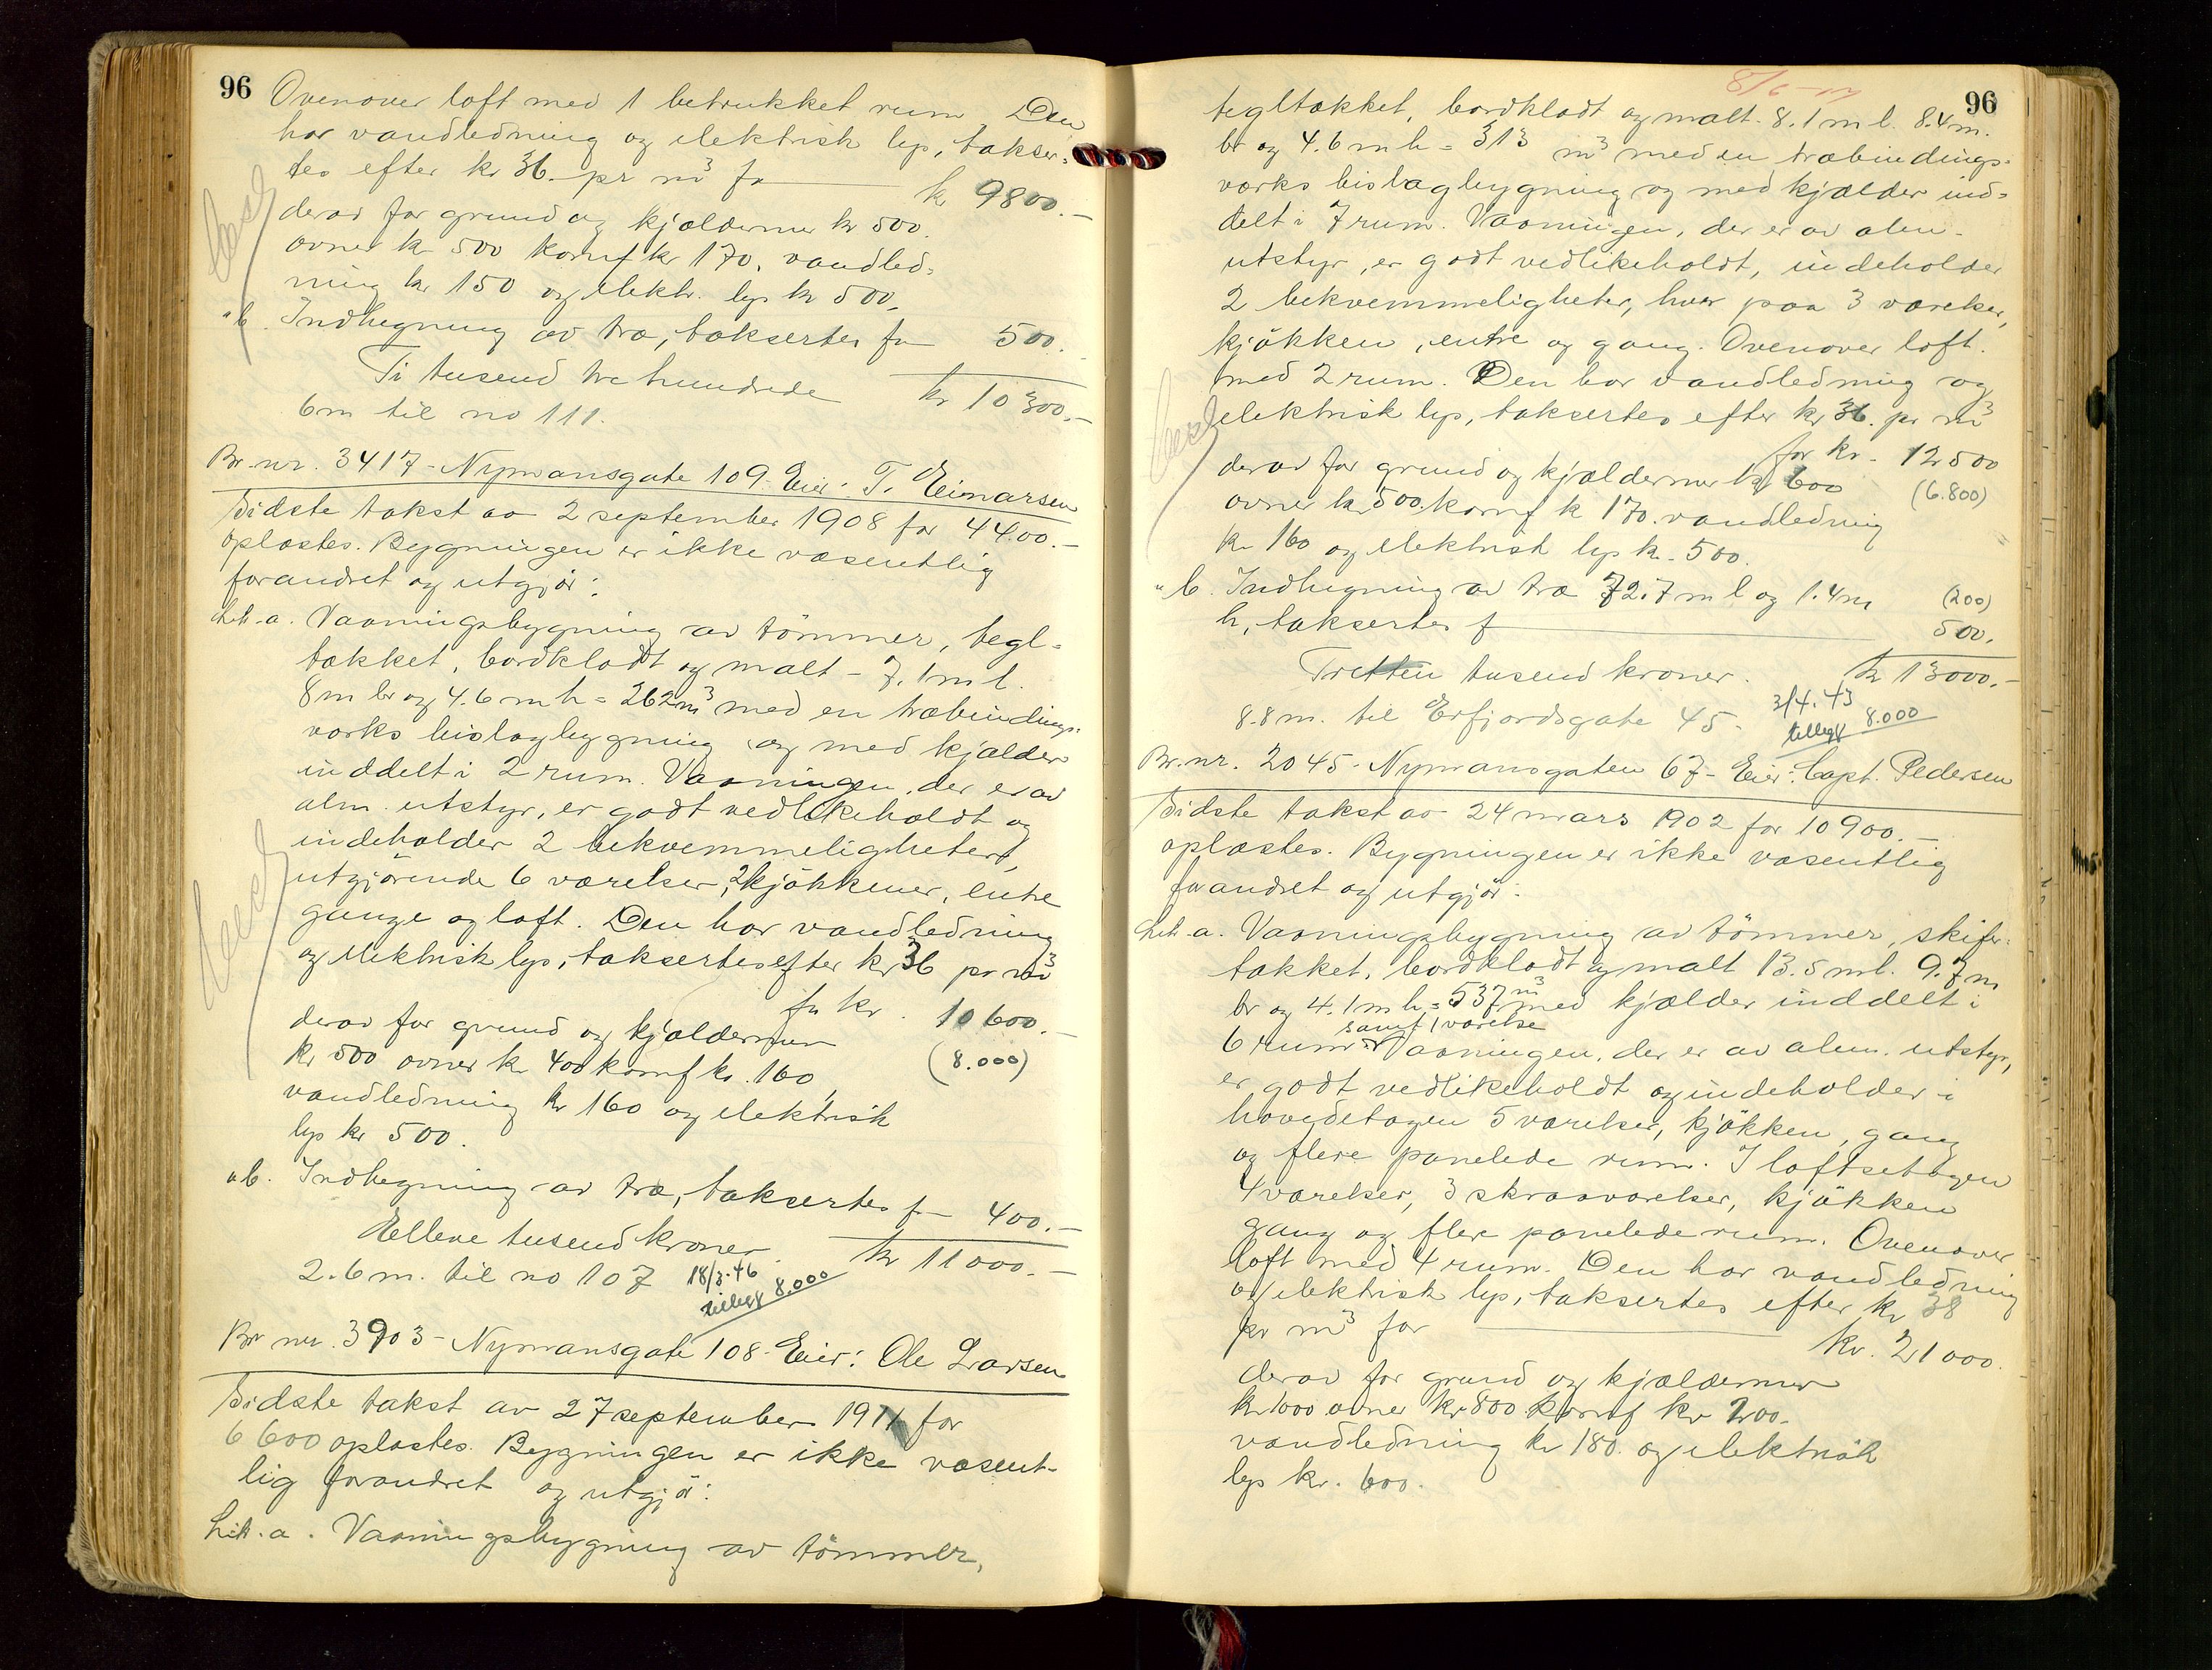 96
Ovenover loft med 1 betrukket rum. Den
har vandledning og elektrisk lys, takser-
tes efter kr 36. pr m³ for kr 9800.-
derav for grund og kjældermur kr 500.
ovner kr 500 komf kr 170, vandled-
ning kr 150 og elektr. lys kr 500.
"b. Indhegning av træ, taksertes for 500.
Ti tusend tre hundrede kr 10300.-
6m til no 111.
Br. nr. 3417 - Nymansgate 109 Eier: T. Eimarsen
Sidste takst av 2 september 1908 for 4400.-
oplæstes. Bygningen er ikke væsentlig
forandret og utgjør:
Lit. a. Vaaningsbygning av tömmer, tegl-
tækket, bordklædt og malt - 7.1 m l.
8m br og 4.6 m h = 262 m³ med en træbindings-
værks bislagbygning og med kjælder
inddelt i 2 rum. Vaaningen, der er av
alm. utstyr, er godt vedlikeholdt og
indeholder 2 bekvemmeligheter,
utgjörende 6 værelser, 2 kjökkener, entre
gange og loft. Den har vandledning
og elektrisk lys, taksertes efter kr 36 pr m³
for kr. 10600.-
derav for grund og kjældermur
kr 500 ovner kr 400 komf kr. 160, (8.000)
vandledning kr 160 og elektrisk
lys kr 500.
"b. Indhegning av træ, taksertes for 400.-
Elleve tusend kroner. kr 11000.-
2.6 m. til no 107 18/3.46
tillegg 8.000
Br nr. 3903 - Nymansgate 108 - Eier: Ole Larsen
Sidste takst av 27 september 1911 for
6600 oplæstes. Bygningen er ikke væsent-
lig forandret og utgjör:
Lit. a. Vaaningsbygning av tömmer,
96
tegltækket, bordklædt og malt. 8.1 m l. 8.4 m.
br og 4.6 m h = 313 m³ med en træbindings-
værks bislagbygning og med kjælder ind-
delt i 7 rum. Vaaningen, der er av alm.
utstyr, er godt vedlikeholdt, indeholder
2 bekvemmeligheter, hver paa 3 værelser,
kjökken, entre og gang. Ovenover loft.
med 2 rum. Den har vandledning og
elektrisk lys, taksertes efter kr 36. pr m³
for kr. 12500
derav for grund og kjældermur kr 600 (6.800)
ovner kr 500. komf k 170. vandledning
kr 160 og elektrisk lys kr. 500.
"b. Indhegning av træ 72.7 m l og 1.4 m (200)
h, taksertes f 500.
Tretten tusend kroner. kr 13000.-
8.8 m. til Erfjordsgate 45. 3/4.43
tillegg 8.000
Br. nr. 2045 - Nymansgaten 67 - Eier: Capt. Pedersen
Sidste takst av 24 mars 1902 for 10900.-
oplæstes. Bygningen er ikke væsentlig
forandret og utgjör:
Lit. a. Vaaningsbygning av tömmer, skifer-
tækket, bordklædt og malt 13.5 m l. 9.7 m
br og 4.1 m h = 537 m³ med kjælder inddelt i
samt 1 værelse
6 rum. Vaaningen, der er av alm. utstyr,
er godt vedlikeholdt og indeholder i
hovedetagen 5 værelser, kjökken, gang
og flere panelede rum. I loftsetagen
4 værelser, 3 skraaværelser, kjökken
gang og flere panelede rum. Ovenover
loft med 4 rum. Den har vandledning
og elektrisk lys, taksertes efter kr 38
pr m³ for kr. 21000.
derav for grund og kjældermur
kr 1000 ovner kr 800 komf kr 200.
vandledning kr 180. og elektrisk
lys kr. 600.